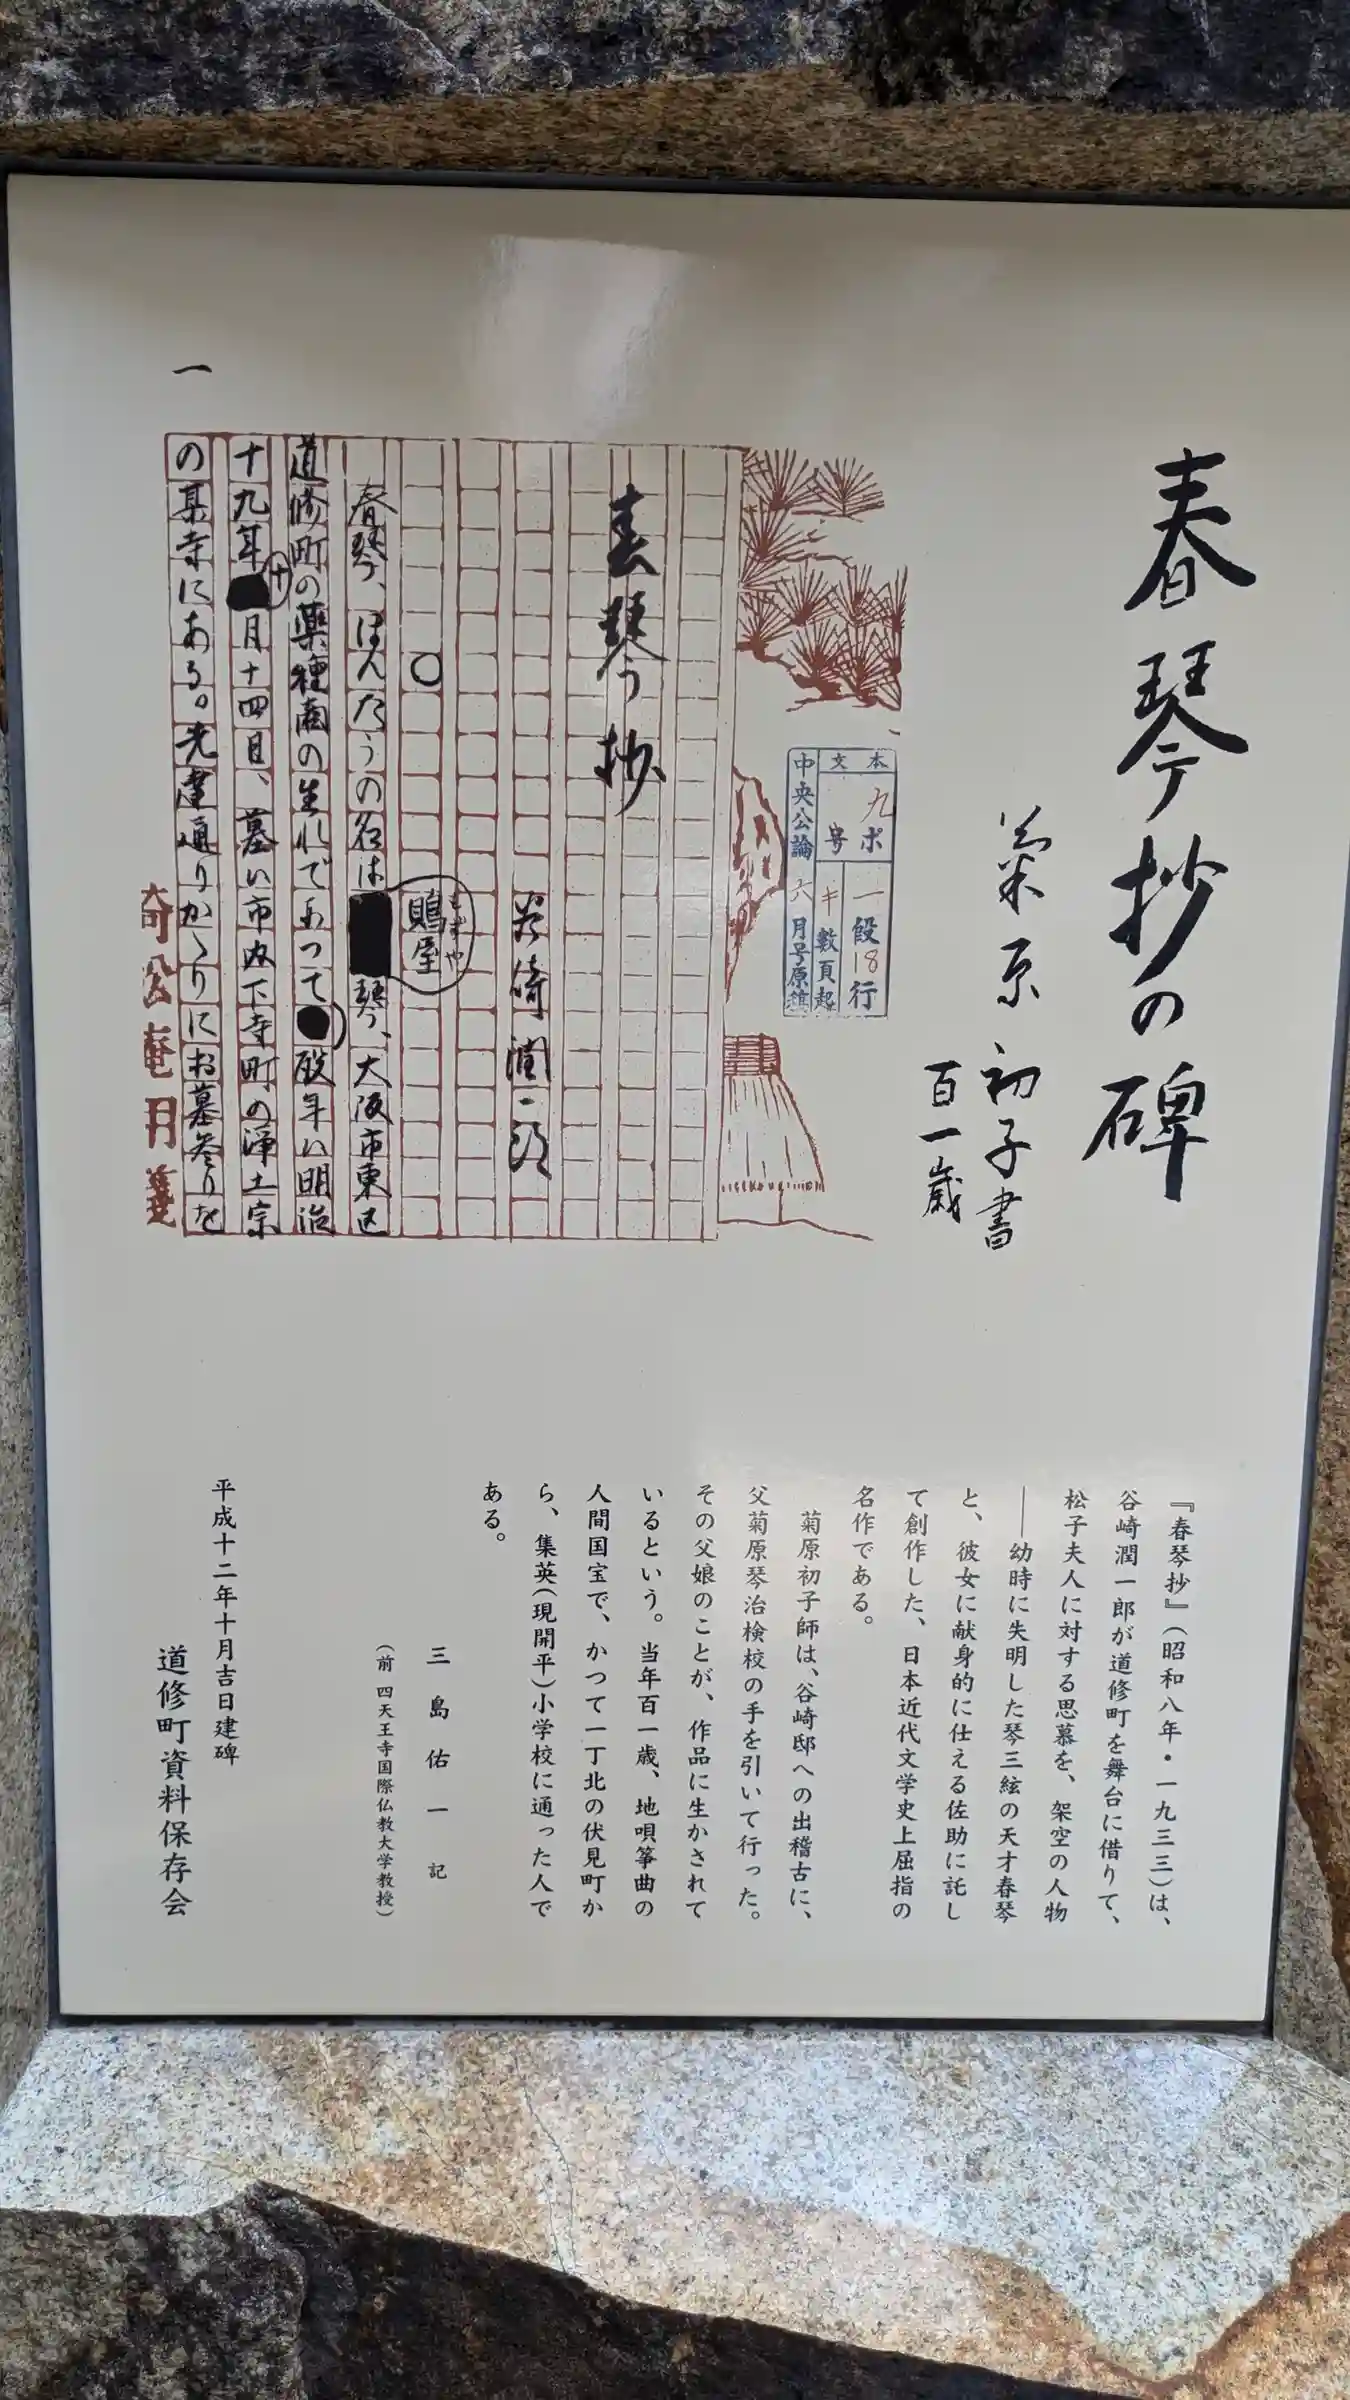 春琴抄の碑
菊原初子書
百一歳
本文
九ポ
号
一段18行
キ數頁起
中央公論六月号原稿
春琴抄
谷崎潤一郎
〇
もずや
鵙屋
春琴、ほんたうの名は琴、大阪市東区
道修町の薬種商の生れであつて歿年は明治
十九年十月十四日、墓は市内下寺町の浄土宗
の某寺にある。先達通りかゝりにお墓参りを
一
『春琴抄』(昭和八年・一九三三)は、
谷崎潤一郎が道修町を舞台に借りて、
松子夫人に対する思慕を、架空の人物
――幼時に失明した琴三絃の天才春琴
と、彼女に献身的に仕える佐助に託し
て創作した、日本近代文学史上屈指の
名作である。
菊原初子師は、谷崎邸への出稽古に、
父菊原琴治検校の手を引いて行った。
その父娘のことが、作品に生かされて
いるという。当年百一歳、地唄箏曲の
人間国宝で、かつて一丁北の伏見町か
ら、集英(現開平)小学校に通った人で
ある。
三島佑一記
(前 四天王寺国際仏教大学教授)
平成十二年十月吉日建碑
道修町資料保存会